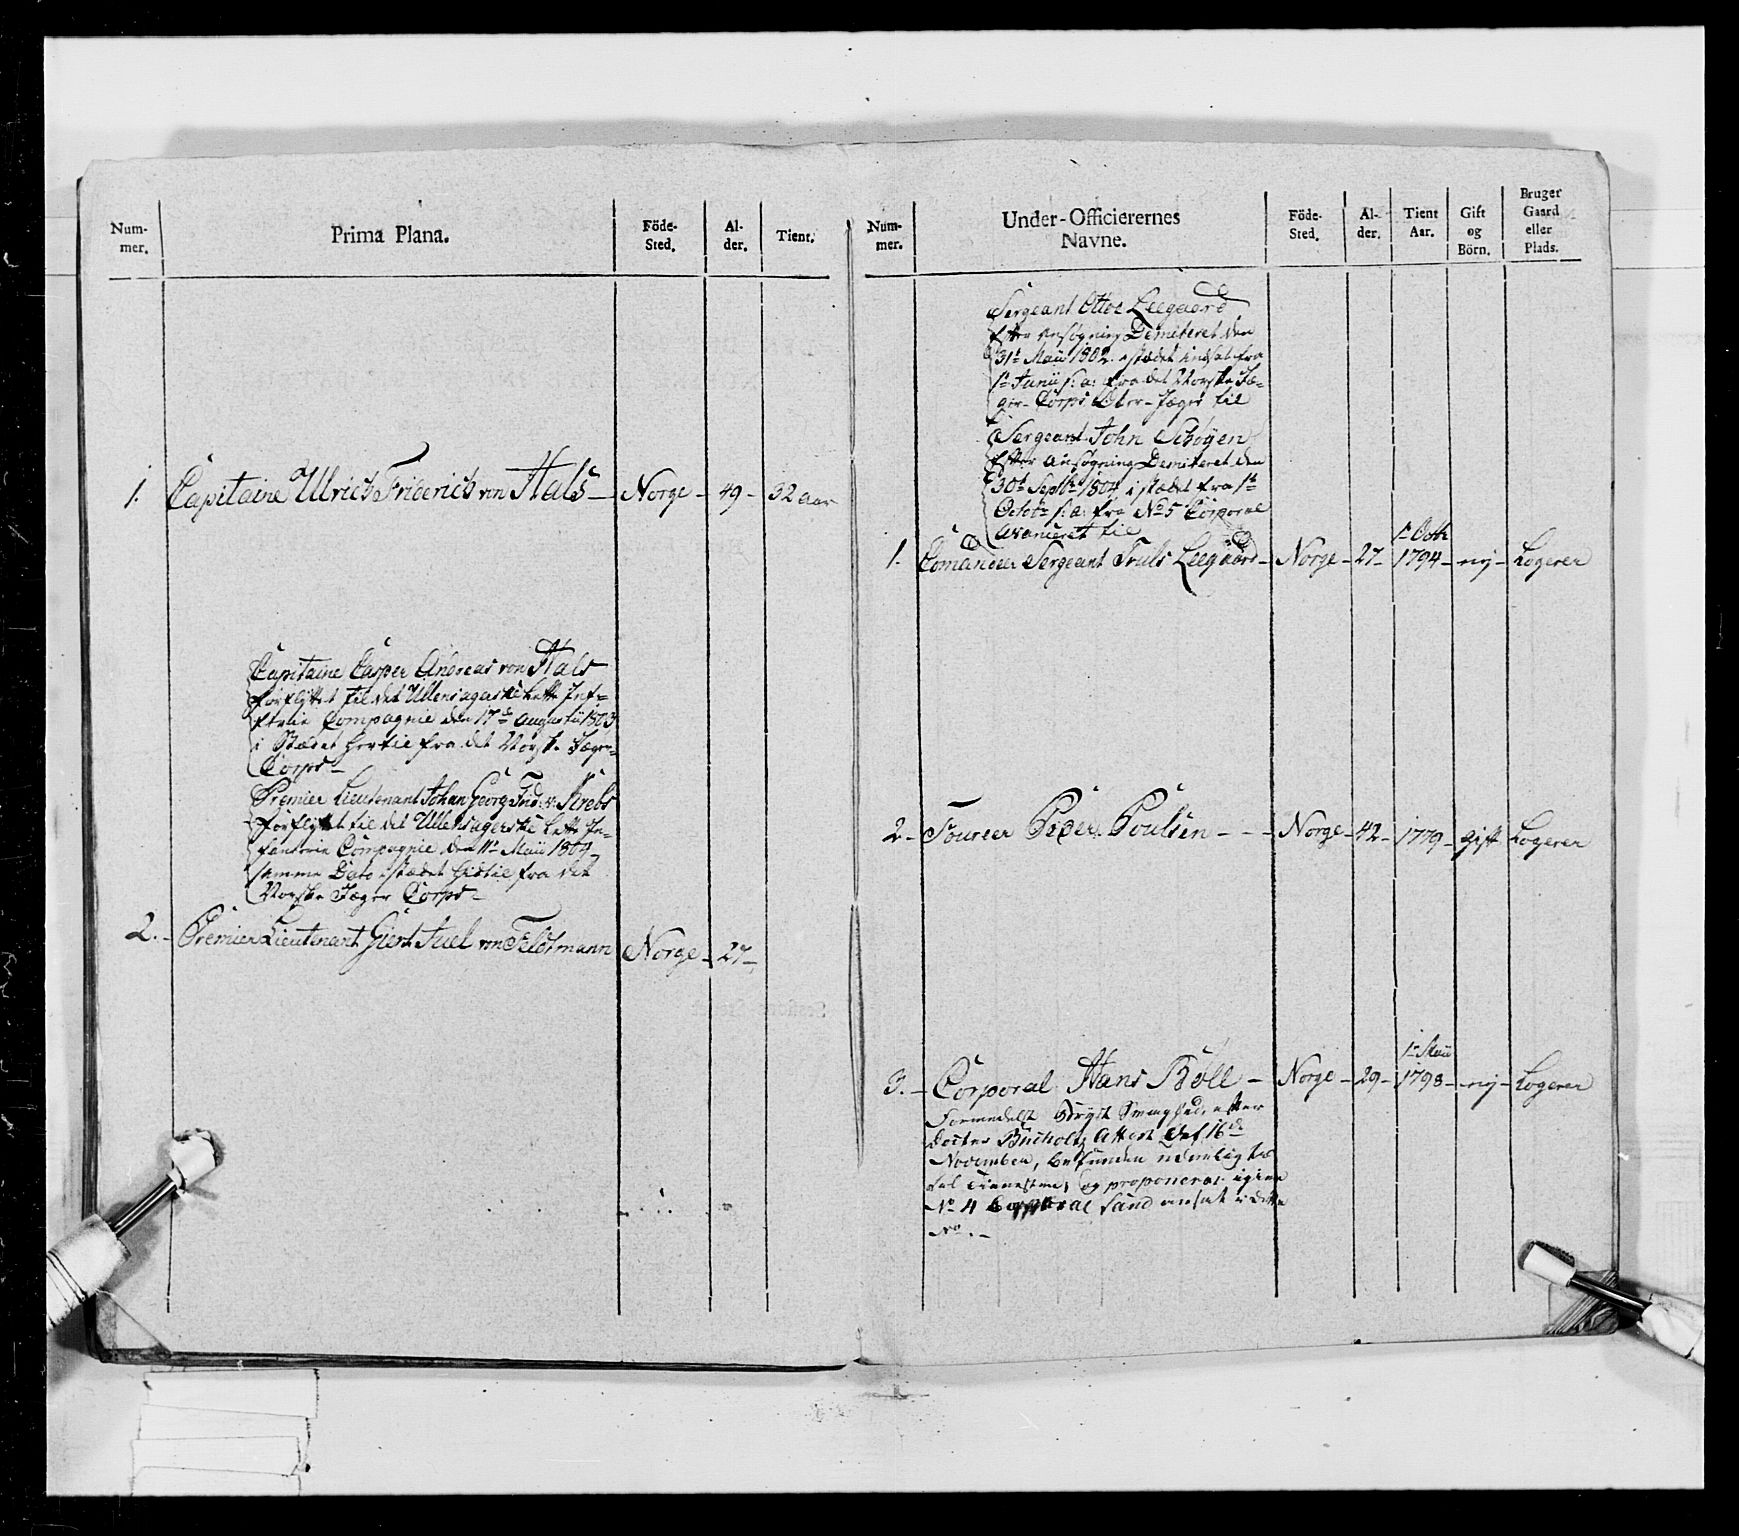 Num-
mer.
Prima Plana.
Föde-
Sted.
Al-
der.
Tient.
1. Capitaine Ulrich Friderich von Hals – Norge – 49 – 32 aar
Capitaine Casper Andreas von Hals
forflyttet til det Ullensagerske Lette Inf-
ftrie Compagnie den 17de Augustii 1803
i Stædet hertil fra det Norske Jæger-
Corps –
Premier Lieutenant Johan Georg Frid: v: Krebs
forflyttet til det Ullensagerske Lette In-
fanterie Compagnie den 11te Maii 1804
samme Dato i stædet hidtil fra det
Norske Jæger Corps –
2. – Premier Lieutenant Giert Juel von Feldtmann Norge – 27 –
Num-
mer.
Under-Officierernes
Navne.
Föde-
Sted.
Al-
der.
Tient
Aar.
Gift
og
Börn.
Bruger
Gaard
eller
Plads.
Sergeant Ottoe Leegaard
Efter Ansøgning Demiteret den
31te Maii 1802. i stædet indsat fra
1te Junii s: a: fra det Norske Jæ-
ger-Corps Ober-Jæger til
Sergeant John Schøyen
Efter Ansøgning Demiteret den
30te Septbr 1804 i stædet fra 1te
Octobr s: a: fra No 5 Corporal
Avanceret til
1te Octbr
1. Comandeer Sergeant Truls Leegaard – Norge – 27 – 1794 – nij – Logerer
2 – Foureer Peder Poulsen – – – Norge – 42 – 1779 – Gift Logerer
1te Maii
3. – Corporal Hans Böll – Norge – 29 – 1798 – nij – Logerer
Formedelst Bryst Svaghed, efter
Docter Buchholtz Attest Dat. 16de
November, befunden udenlig til
Tienesten, og proponeres igien
No 4 Corporal Sand ansat i dette
No. –